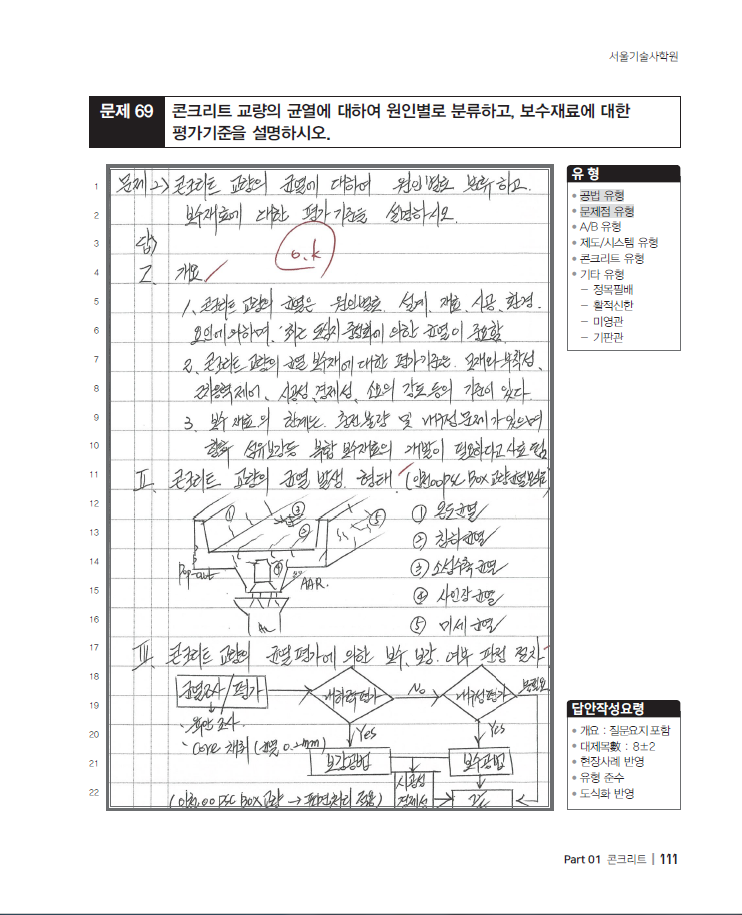 서울기술사학원
문제 69
콘크리트 교량의 균열에 대하여 원인별로 분류하고, 보수재료에 대한
평가기준을 설명하시오.
유 형
• 공법 유형
• 문제점 유형
• A/B 유형
• 제도/시스템 유형
• 콘크리트 유형
• 기타 유형
– 정목필배
– 활적신한
– 미영관
– 기판관
1 문제 2) 콘크리트 교량의 균열에 대하여 원인별로 분류하고,
2 보수재료에 대한 평가기준을 설명하시오.
3 답)
o.k
4 I. 개요
5 1. 콘크리트 교량의 균열은 원인별로 설계, 재료, 시공, 환경,
6 요인에 의하며, 최근 의한 균열이 중요함.
7 2. 콘크리트 교량의 균열 보수재에 대한 평가기준은 모재와 부착성,
8 시공성, 경제성, 소요의 강도등의 기준이 있다.
9 3. 보수재료의 한계는 충전불량 및 내구성문제가 있으며
10 향후 섬유보강등 복합 보수재료의 개발이 필요하다고 사료됨
11 II. 콘크리트 교량의 균열 발생 형태. (인천OO PSC BOX 교량
12 ① 온도균열
13 ② 침하균열
14 ③ 소성수축균열
15 ④ 사인장균열
16 ⑤ 미세균열
① ③ ② ⑤ ④
Pop-out
AAR.
17 III. 콘크리트 교량의 균열평가에 의한 보수, 보강 여부 판정 절차
18 균열조사/평가
내하력평가
No
내구성평가
불필요
19 · 육안조사
20 · Core 채취 (균열 0.2mm)
Yes
Yes
21 보강공법
보수공법
시공성
경제성
22 (인천OO PSC BOX 교량 → 표면처리 적용)
답안작성요령
• 개요 : 질문요지 포함
• 대제목數 : 8±2
• 현장사례 반영
• 유형 준수
• 도식화 반영
Part 01 콘크리트 | 111